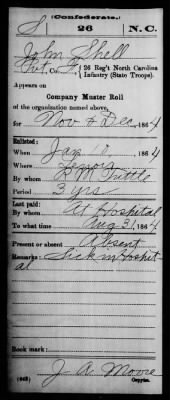 (Confederate.)
S 26 N.C.
John Shell
Pvt, Co. F, 26 Reg't North Carolina
Infantry (State Troops).
Appears on
Company Muster Roll
of the organization named above,
for Nov & Dec, 1864
Enlisted:
When Jan 1, 1864
Where Lenoir
By whom M Tuttle
Period 3 yrs
Last paid:
By whom At Hospital
To what time Aug 31, 1864
Present or absent Absent
Remarks: Sick in Hospit
al
Book mark:
J. A. Moore
(642) Copyist.